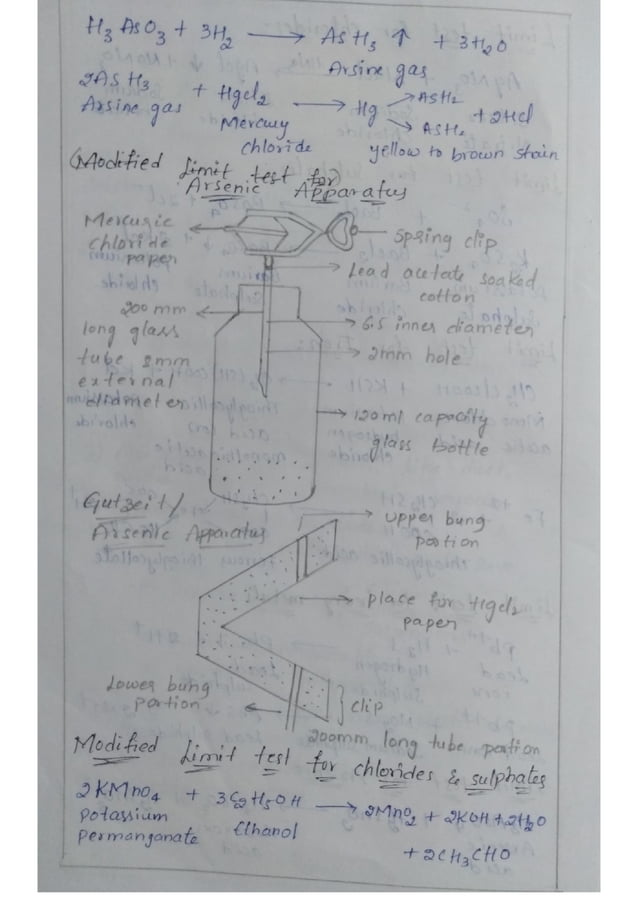 H₃AsO₃ + 3H₂ ⟶ AsH₃ ↑ + 3H₂O
Arsine gas
2AsH₃ + HgCl₂ ⟶ Hg → AsH₂ + 2HCl
→ AsH₂
Arsine gas Mercury chloride yellow to brown stain
(Modified Limit test for)
Arsenic Apparatus
Mercuric
chloride
paper
spring clip
Lead acetate soaked
cotton
200 mm
long glass
tube 8mm
external
didmeter
6.5 inner diameter
2mm hole
120ml capacity
glass bottle
Gutzeit/
Arsenic Apparatus
upper bung
portion
place for HgCl₂
paper
Lower bung
portion
clip
200mm long tube portion
Modified Limit test for chlorides & sulphates
2KMnO₄ + 3C₂H₅OH ⟶ 2MnO₂ + 2KOH + 2H₂O
potassium
permanganate Ethanol
+ 2CH₃CHO